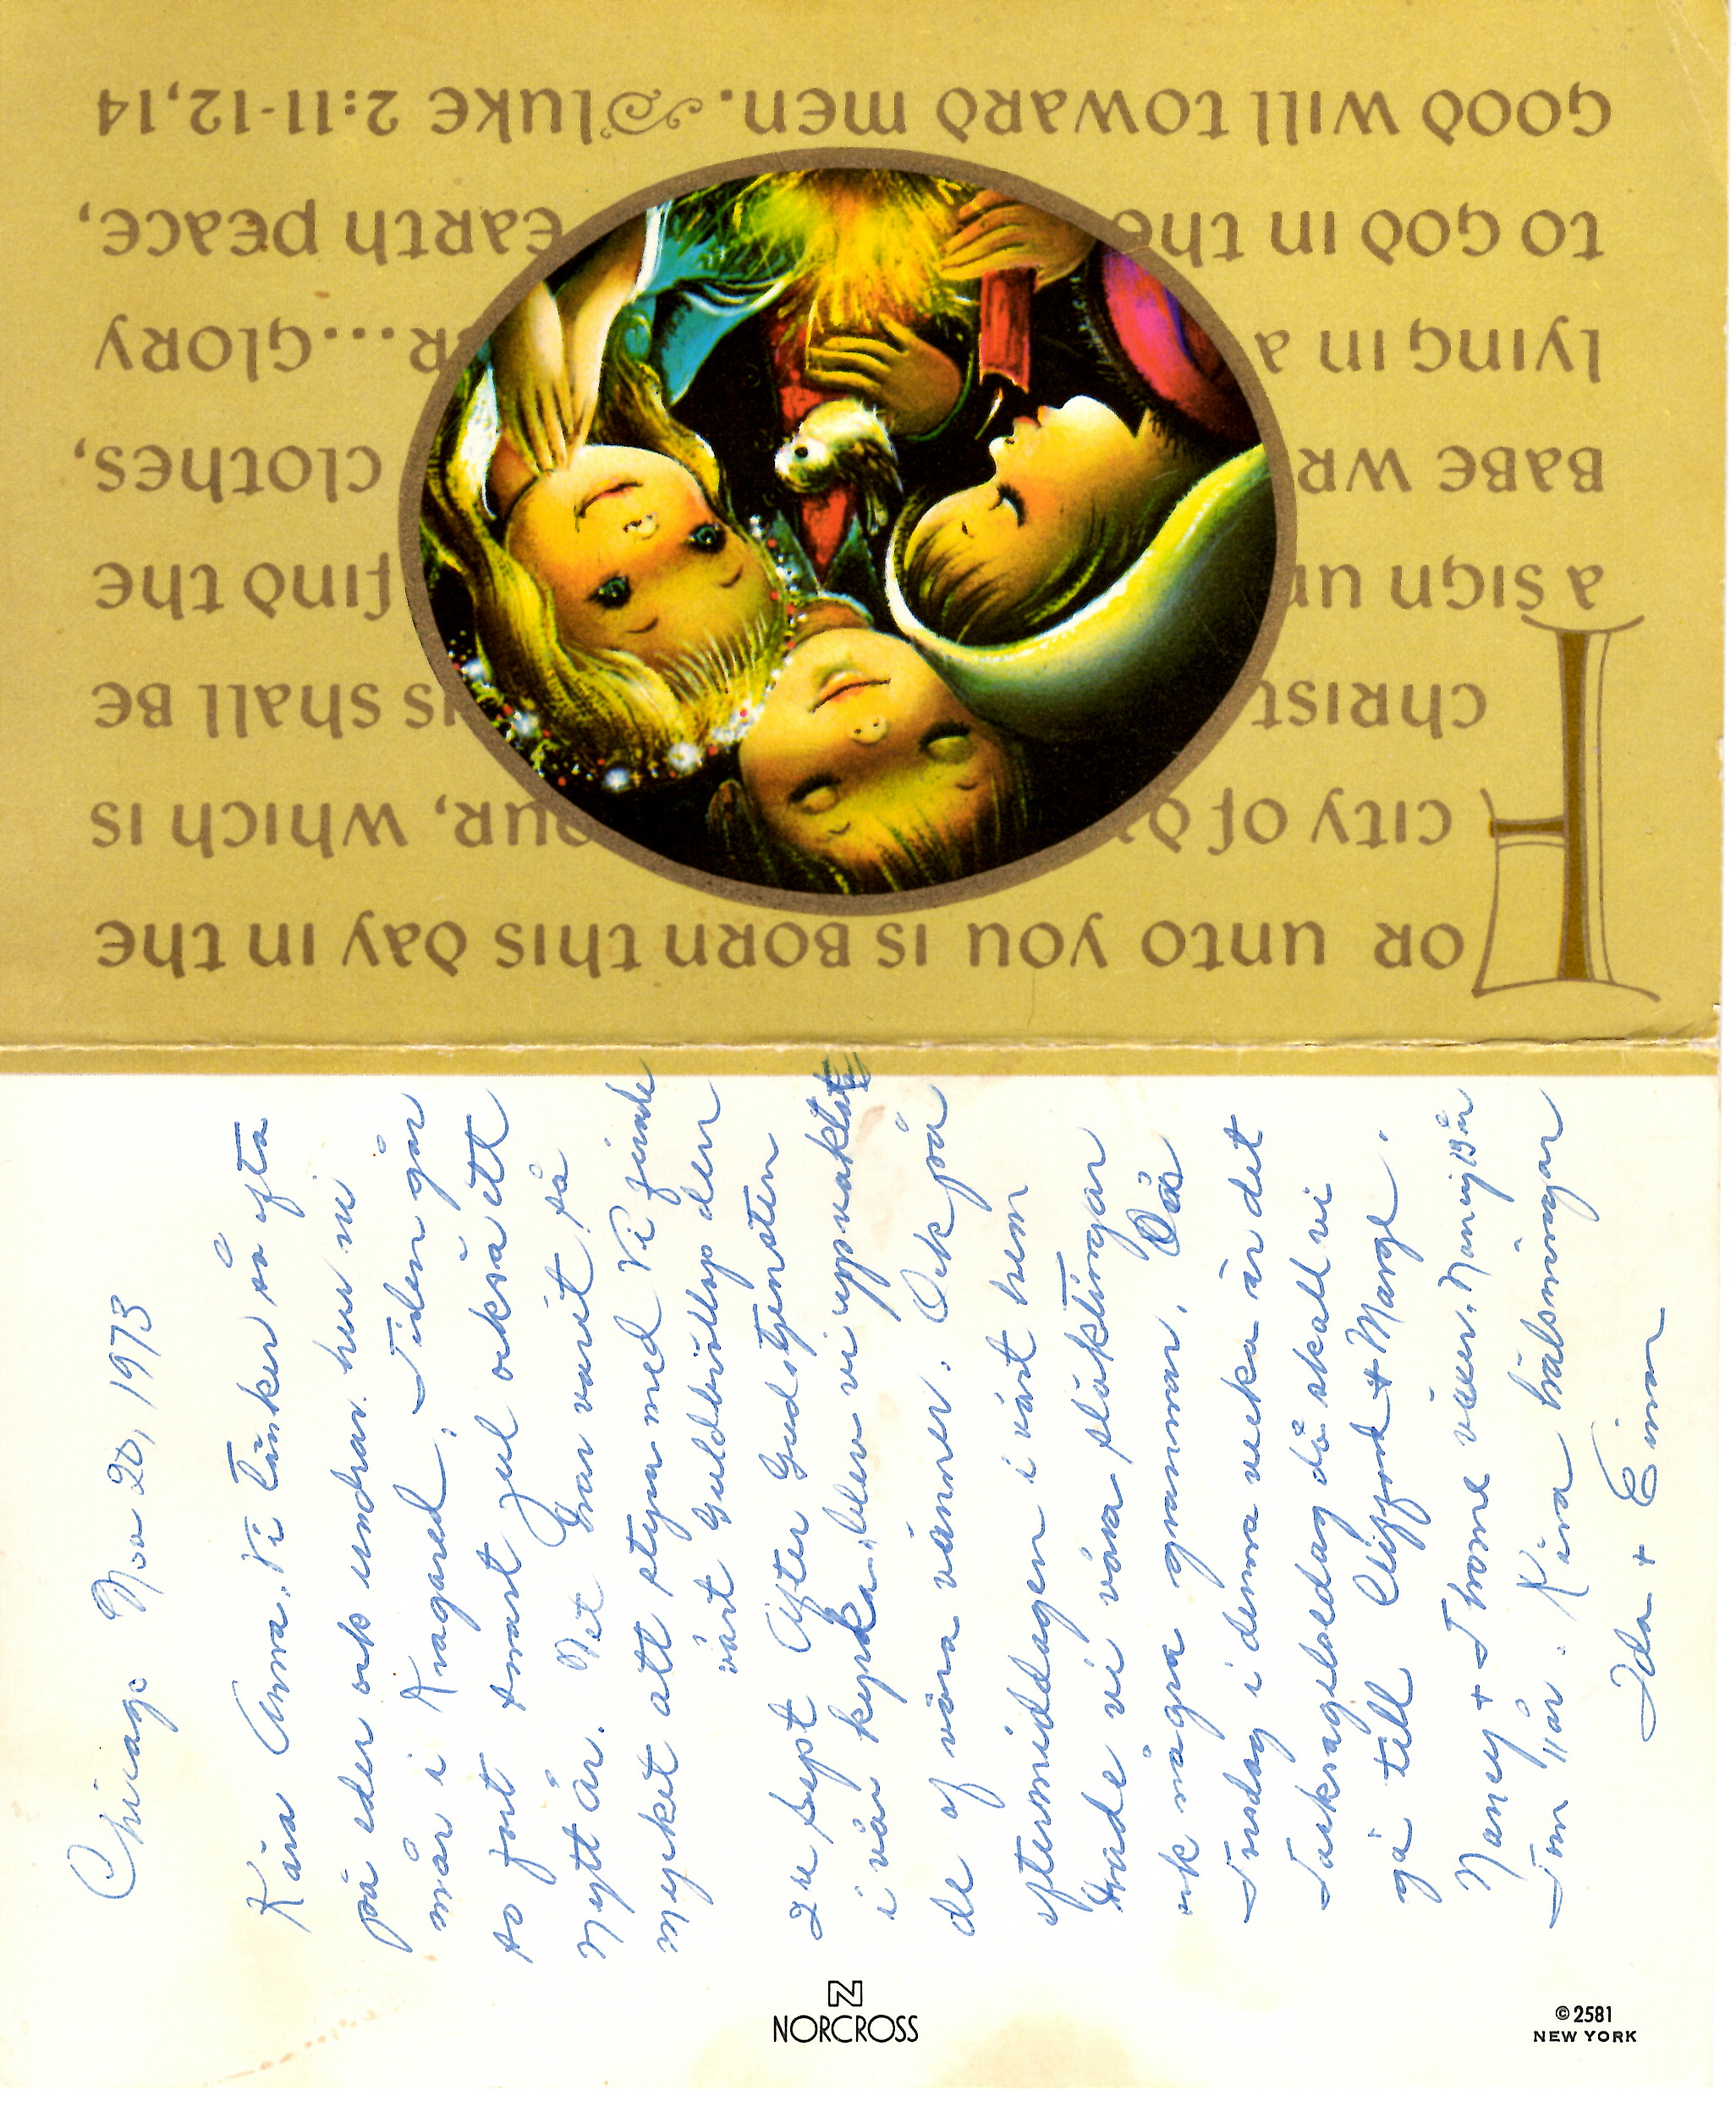 For unto you is born this day in the
city of D our, which is
Christ is shall be
a sign un find the
Babe wr clothes,
lying in a er...Glory
to God in the earth peace,
good will toward men. Luke 2:11-12,14
Chicago Nov 20, 1973
Kära Anna. Vi tänker så ofta
på eder och undrar hur ni
mår i Kvagared. Tiden går
so fort snart Jul också ett
Nytt År. Det har varit så
mycket att styra med Vi firade
vårt Guldbröllop den
2re Sept After Gudstjensten
i vår kyrka, blev vi uppvaktate
de af våra vänner. Och på
eftermiddagen i vårt hem
hade vi våra släktingar
och några grannar. Då
Torsdag i denna vecka är det
Tacksagelsedag då skall vi
gå till Clifford + Marge.
Nancy + Tome växer. Nancy 13 år
Tom 11 år. Kära hälsningar
Ida + Einar
NORCROSS
© 2581
NEW YORK